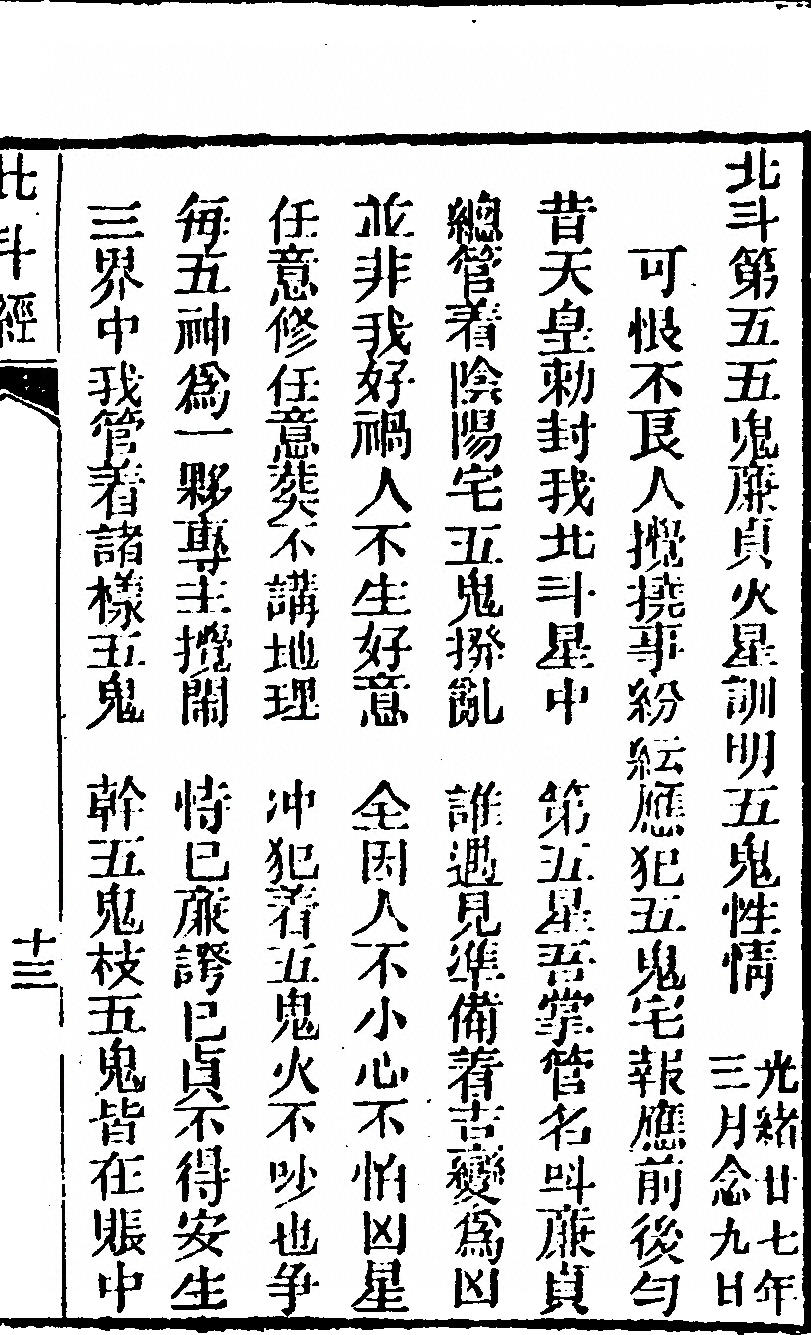 北斗第五五鬼廉貞火星訓明五鬼性情
光緒廿七年
三月念九日
可恨不良人攪撓事紛紜應犯五鬼宅報應前後勻
昔天皇勅封我北斗星中 第五星吾掌管名叫廉貞
總管着陰陽宅五鬼撥亂 誰遇見準備着吉變爲凶
並非我好禍人不生好意 全因人不小心不怕凶星
任意修任意葬不講地理 冲犯着五鬼火不吵也爭
每五神爲一夥專主攪鬧 恃己廉誇己貞不得安生
三界中我管着諸樣五鬼 幹五鬼枝五鬼皆在賬中
北斗經
十三